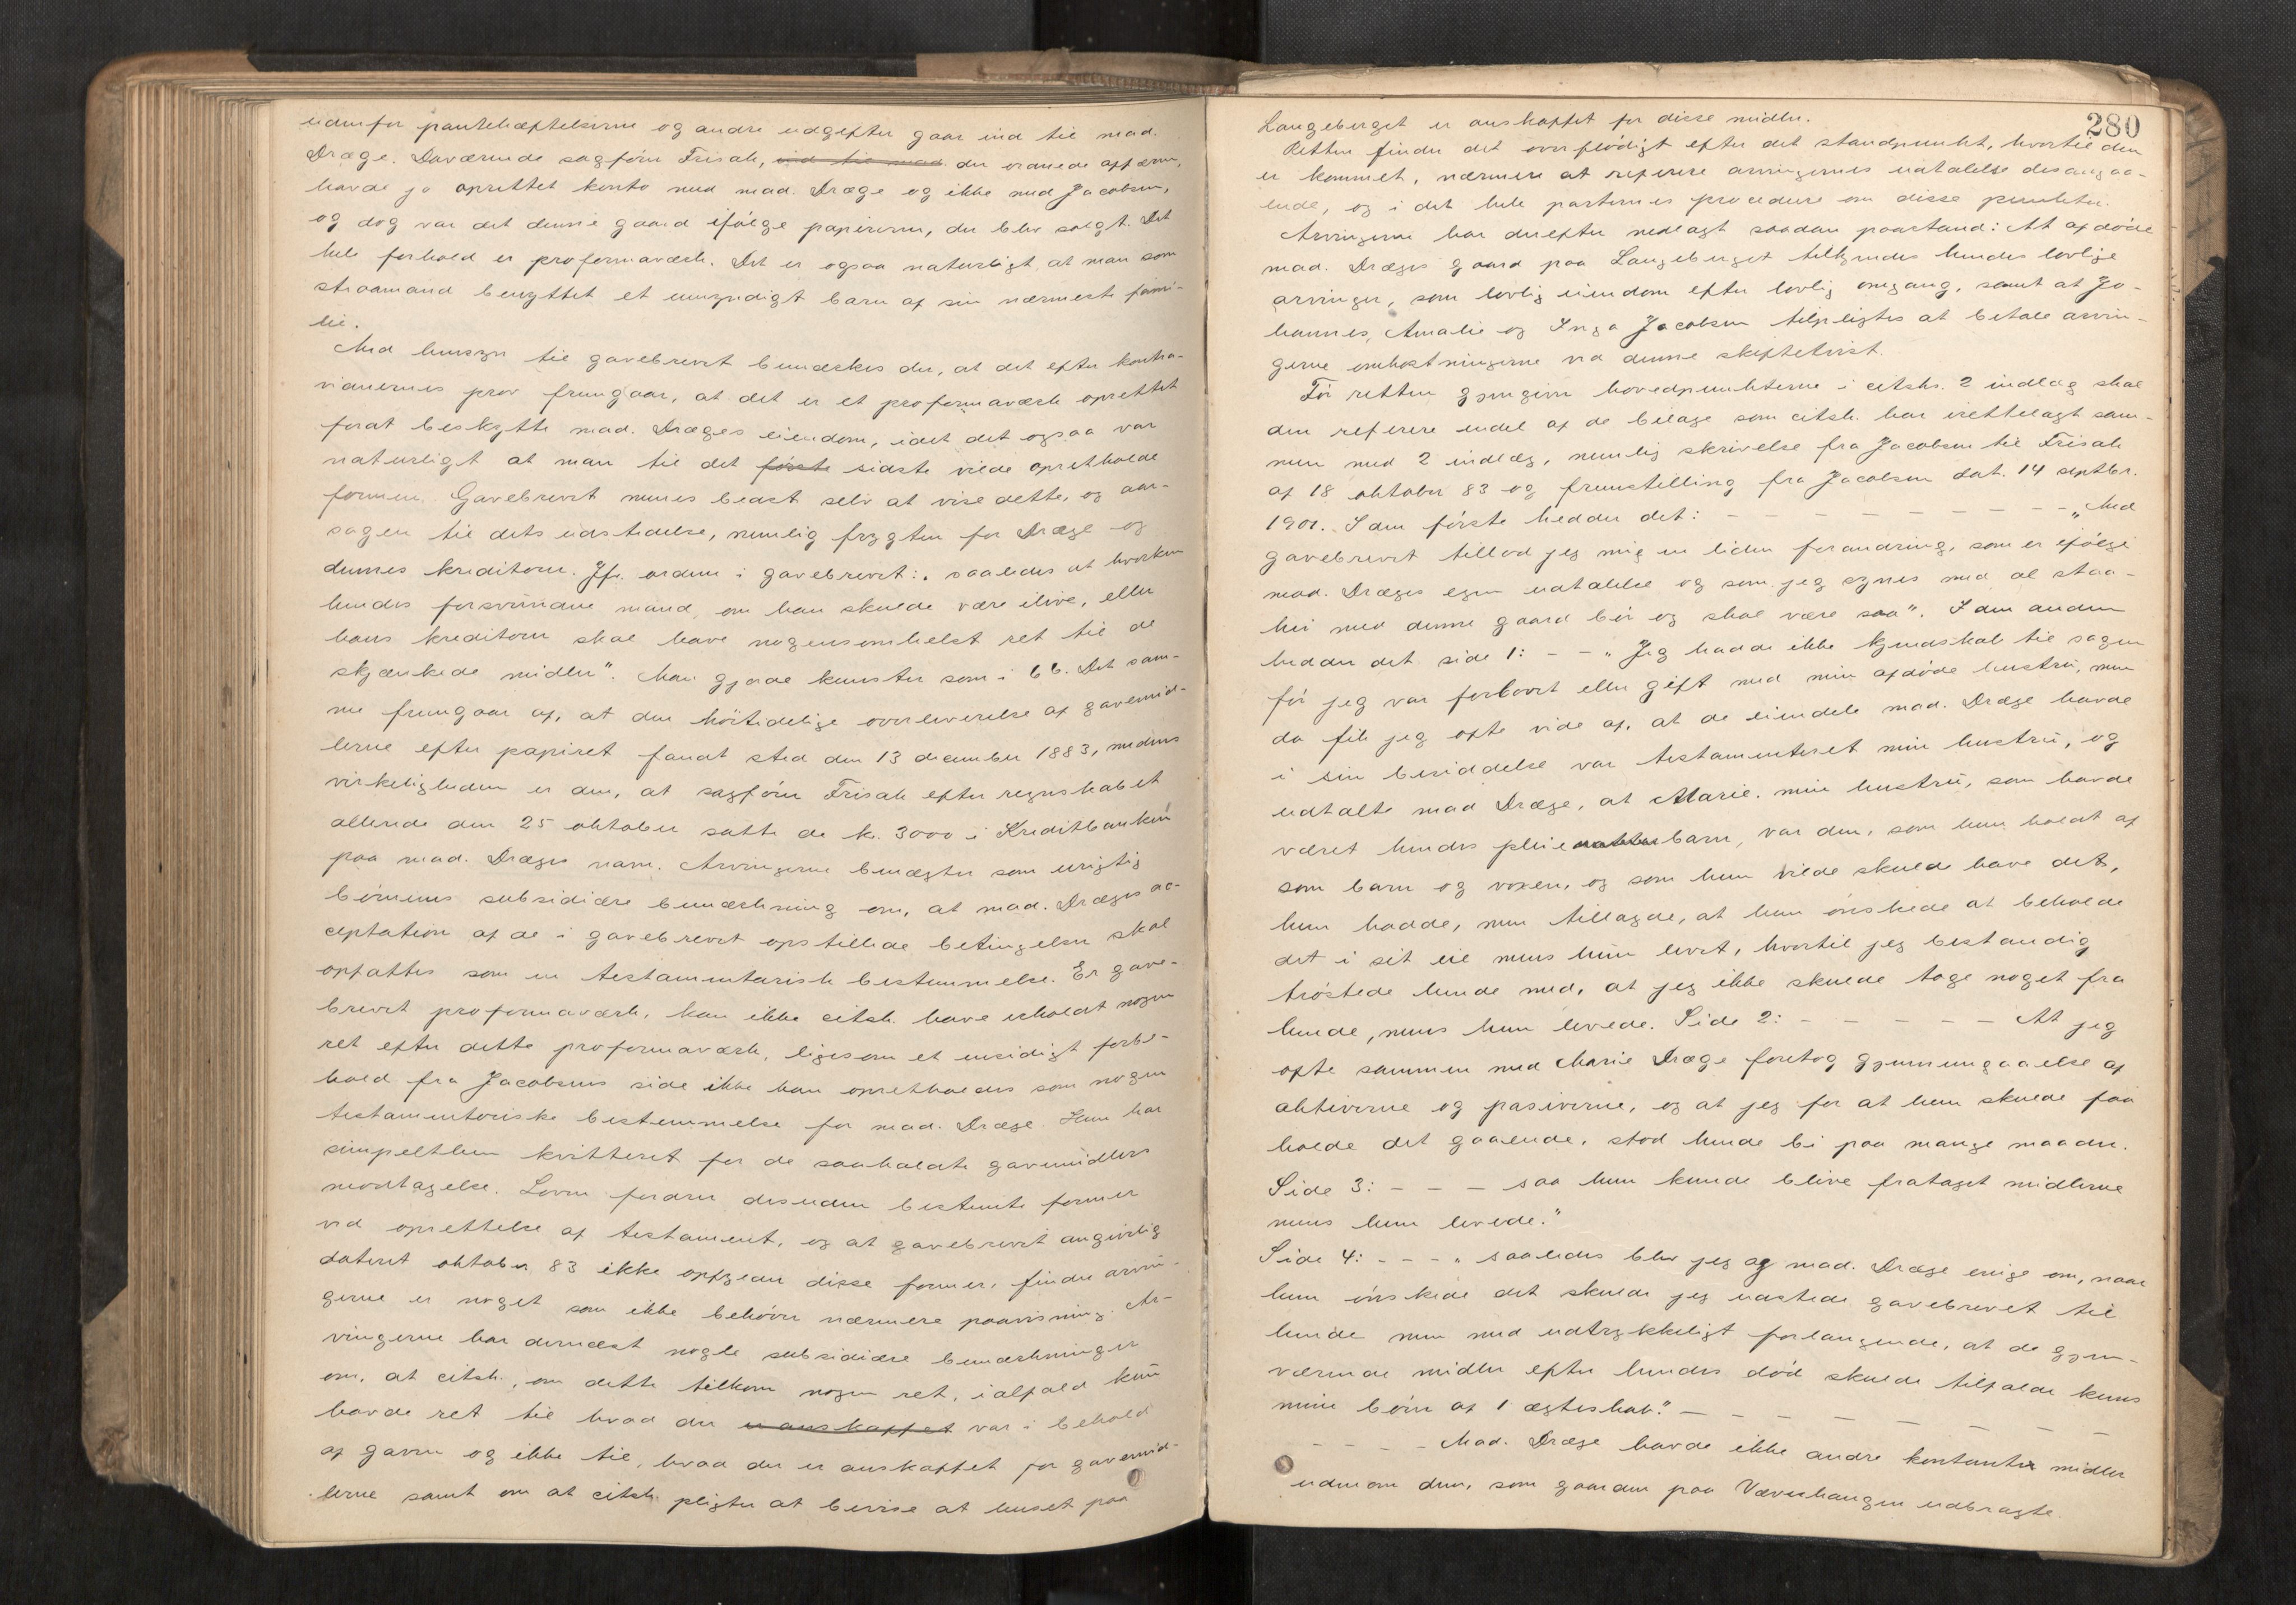 udenfor pantehæftelserne og andre udgifter gaar ind til mad.
Dræge. Daværende sagfører Frisak, ind til mad. der ordnede affæren,
havde jo oprettet konto med mad. Dræge og ikke med Jacobsen,
og dog var det denne gaard ifølge papirerne, der blev solgt. Det
hele forhold er proformaværk. Det er ogsaa naturligt at man som
straamand benyttet et umyndigt barn af sin nærmeste fami-
lie.
Med hensyn til gavebrevet bemærkes der, at det efter kontra-
vidnernes prov fremgaar, at det er et proformaværk oprettet
forat beskytte mad. Dræges eiendom, idet det ogsaa var
naturligt at man til det første sidste vilde opretholde
formen. Gavebrevet menes bedst selv at vise dette, og aar-
sagen til dets udstedelse, nemlig frygten for Dræge og
dennes kreditorer. Jfr. ordene i gavebrevet: „saaledes at hverken
hendes forsvundne mand, om han skulde være ilive, eller
hans kreditorer skal have nogensomhelst ret til de
skjænkede midler". Man gjorde kunster som i 66. Det sam-
me fremgaar af, at den høitidelige overleverelse af gavemid-
lerne efter papiret fandt sted den 13 december 1883, medens
virkeligheden er den, at sagfører Frisak efter regnskabet
allerede den 25 oktober satte de k. 3000 i Kreditbanken
paa mad. Dræges navn. Arvingerne benægter som urigtig
børnenes subsidiære bemærkning om, at mad. Dræges ac-
ceptation af de i gavebrevet opstillede betingelser skal
opfattes som en testamentarisk bestemmelse. Er gave-
brevet proformaværk, kan ikke citsk. have erholdt nogen
ret efter dette proformaværk, ligesom et ensidigt forbe-
hold fra Jacobsens side ikke kan opretholdes som nogen
testamentariske bestemmelse for mad. Dræge. Hun har
simpelthen kvitteret for de saakaldte gavemidlers
modtagelse. Loven fordrer desuden bestemte former
ved oprettelse af testament, og at gavebrevet angivelig
dateret oktober 83 ikke opfylder disse former, finder arvin-
gerne er noget som ikke behøver nærmere paavisning. Ar-
vingerne har dernæst nogle subsidiære bemærkninger
om, at citsk., om dette tilkom nogen ret, ialfald kun
havde ret til hvad der er anskaffet var i behold
af gaven og ikke til, hvad der er anskaffet for gavemid-
lerne samt om at citsk. pligter at bevise at huset paa
280
Langeberget er anskaffet for disse midler.
Retten finder det overflødigt efter det standpunkt, hvortil den
er kommet, nærmere at referere arvingernes udtalelse desangaa-
ende, og i det hele parternes procedure om disse punkter.
Arvingerne har derefter nedlagt saadan paastand: At afdøde
mad. Dræges gaard paa Langeberget tilkjendes hendes lovlige
arvinger, som lovlig eiendom efter lovlig omgang, samt at Jo-
hannes, Amalie og Inga Jacobsen tilpligtes at betale arvin-
gerne omkostningerne ved denne skiftetvist.
Før retten gjengiver hovedpunkterne i citsks. 2 indlæg skal
den referere endel af de bilage som citsk. har irettelagt sam-
men med 2 indlæg, nemlig skrivelse fra Jacobsen til Frisak
af 18 oktober 83 og fremstilling fra Jacobsen dat. 14 septbr.
1901. I den første hedder det: - - - - - - - - - „Med
gavebrevet tillod jeg mig en liden forandring, som er ifølge
mad. Dræges egen udtalelse og som jeg synes med al staa-
hei med denne gaard bør og skal være saa". I den anden
hedder det side 1: - - „Jeg hadde ikke kjendskab til sagen
før jeg var forlovet eller gift med min afdøde hustru, men
da fik jeg ofte vide af, at de eiendele mad. Dræge havde
i sin besiddelse var testamenteret min hustru, og
udtalte mad Dræge, at Marie, min hustru, som havde
været hendes pleiebarn, var den, som hun holdt af
som barn og voxen, og som hun vilde skulde have det,
hun hadde, men tillagde, at hun ønskede at beholde
det i sit eie mens hun levet, hvortil jeg bestandig
trøstede hende med, at jeg ikke skulde tage noget fra
hende, mens hun levede. Side 2: - - - - - At jeg
ofte sammen med Marie Dræge foretog gjennemgaaelse af
aktiverne og pasiverne, og at jeg for at hun skulde faa
holde det gaaende, stod hende bi paa mange maader.
Side 3: - - - saa hun kunde blive frataget midlerne
mens hun levede."
Side 4: - - - „saaledes blev jeg og mad. Dræge enige om, naar
hun ønskede det skulde jeg udstede gavebrevet til
hende men med udtrykkeligt forlangende, at de gjen-
værende midler efter hendes død skulde tilfalde kuns
mine børn af 1 ægteskab." - - - - - - -
- - - - Mad. Dræge havde ikke andre kontante midler
udenom dem, som gaarden paa Væverhaugen udbragte.